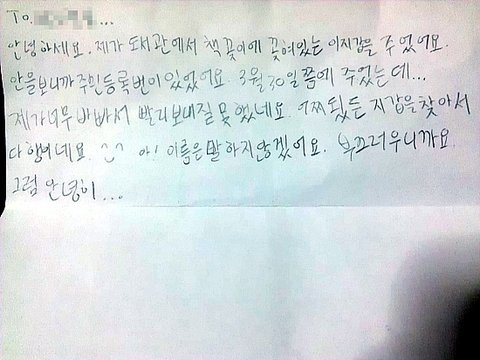 To. ...
안녕하세요. 제가 도서관에서 책꽂이에 꽂혀있는 이지갑을 주웠어요.
안을보니까 주민등록번이 있었어요. 3월 30일쯤에 주웠는데...
제가너무 바빠서 빨리보내질 못했네요. 어찌됬든 지갑을 찾아서
다행이네요. ^^ 아! 이름은 말하지않겠어요. 부끄러우니까요.
그럼 안녕히...